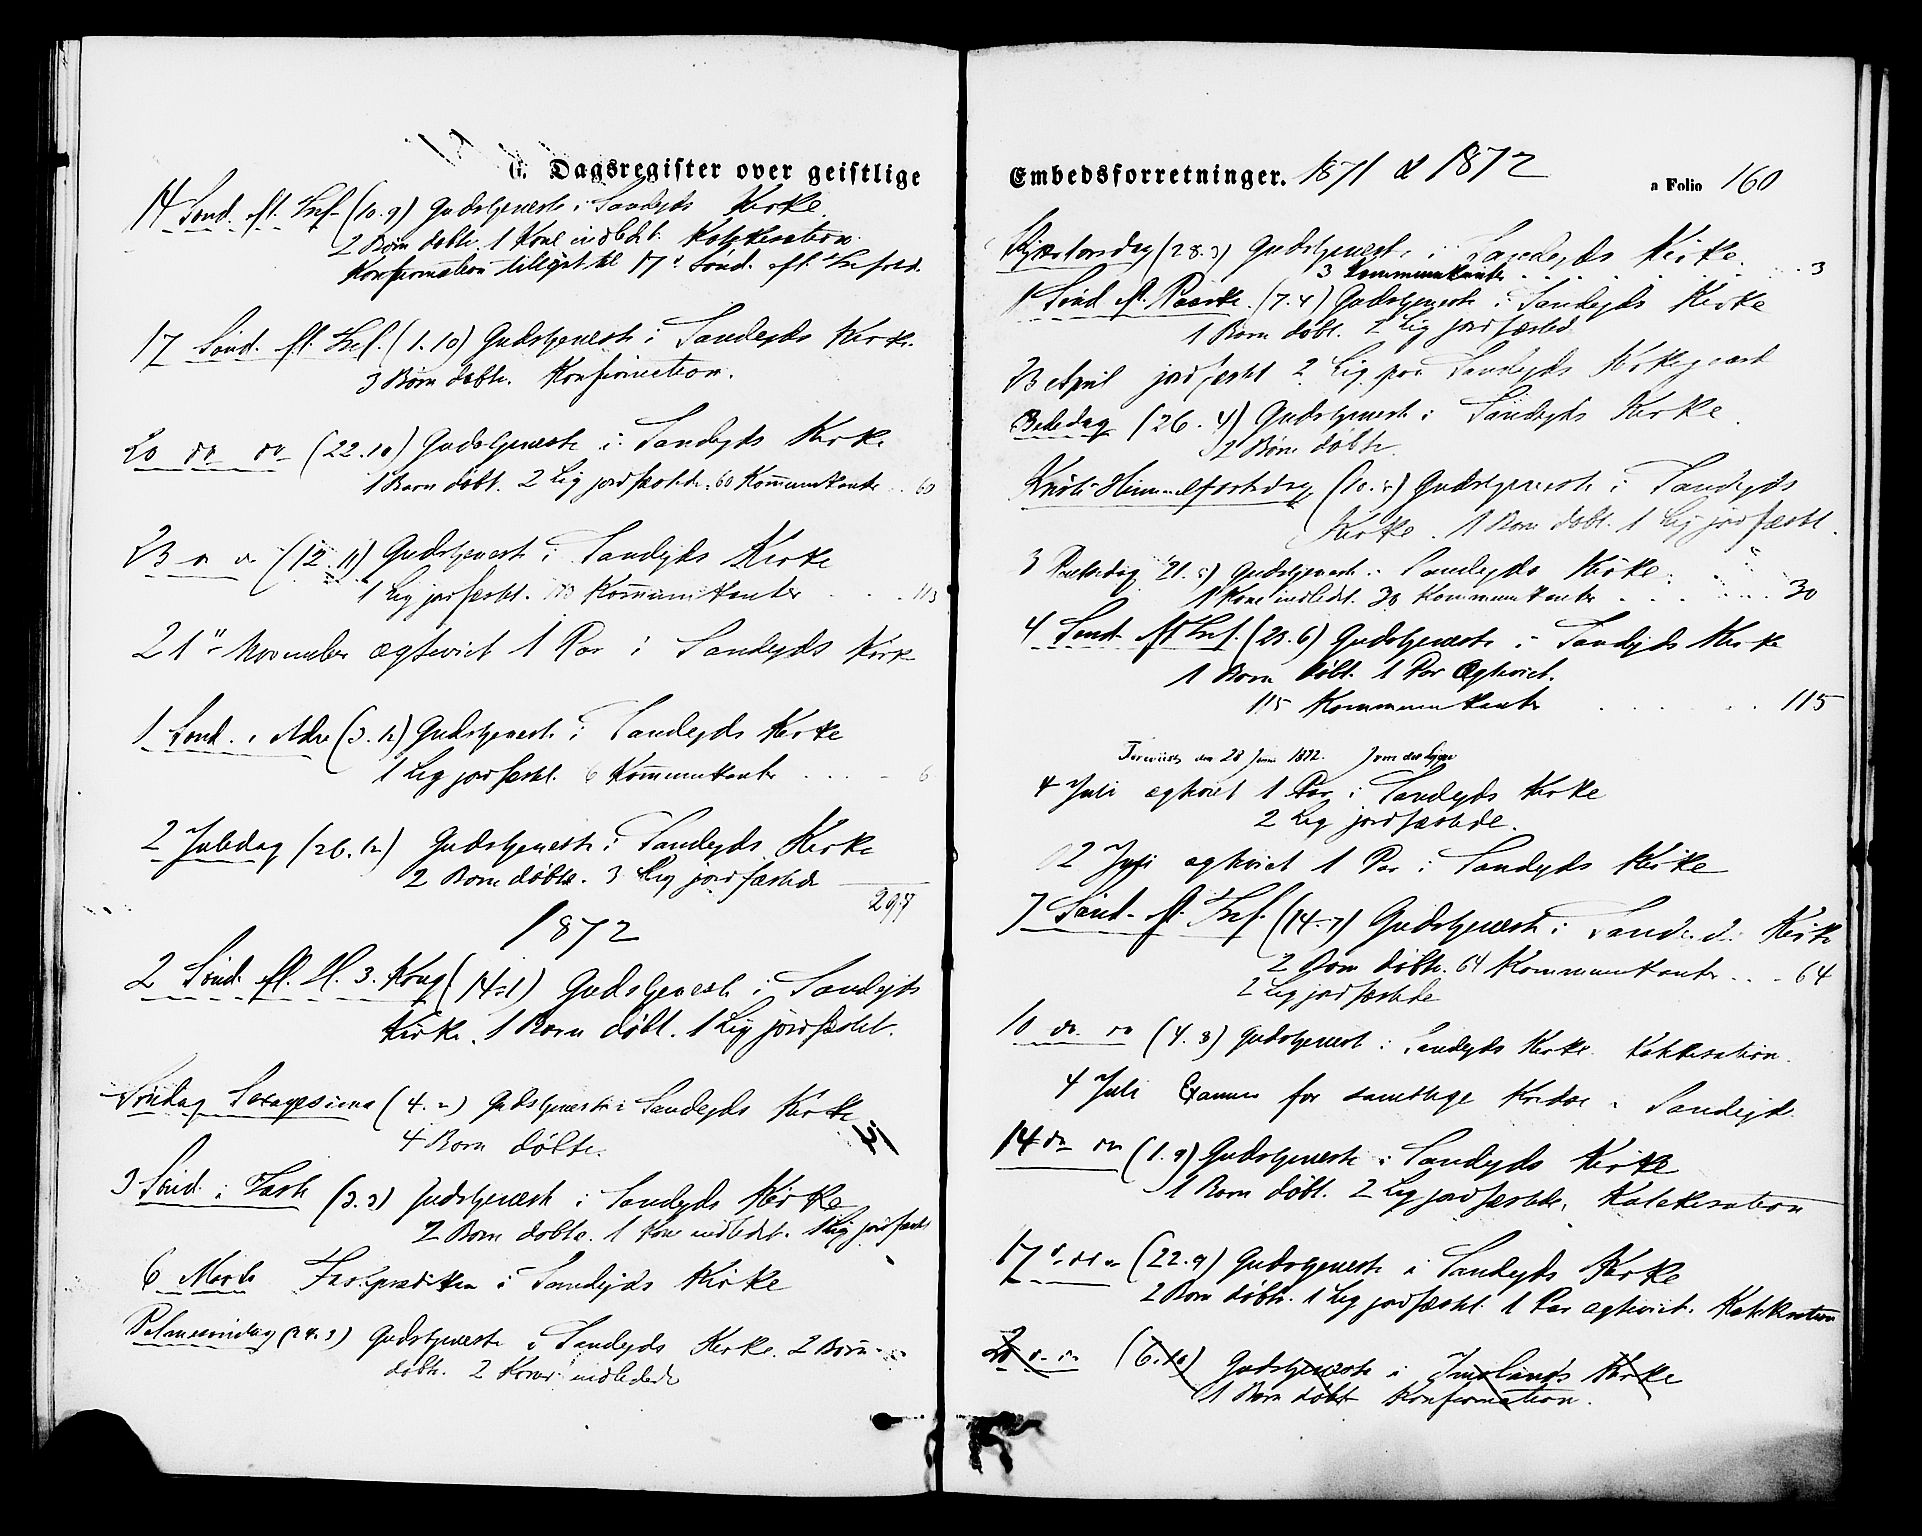 G. Dagsregister over geistlige
14 Sønd. ef. Tref. (10.9) Gudstjeneste i Sandeids Kirke.
2 Børn døbte. 1 Kone indledet. Katekisation.
Konfirmation tillyst til 17de Sønd. ef. Trefold.
17 Sønd. ef. Tref. (1.10) Gudstjeneste i Sandeids Kirke.
3 Børn døbte. Konfirmation.
20 do do (22.10) Gudstjeneste i Sandeids Kirke
1 Barn døbt. 2 Lig jordfæstede. 60 Kommunikanter .. 60
23 " " (12.11) Gudstjeneste i Sandeids Kirke
1 Lig jordfæstet. Kommunikanter . . . 113
21de November ægteviet 1 Par i Sandeids Kirke
1 Sønd. i Adv. (3.12) Gudstjeneste i Sandeids Kirke
1 Lig jordfæstet. 6 Kommunikanter . . . . 6
2 Juledag (26.12) Gudstjeneste i Sandeids Kirke
2 Børn døbte. 3 Lig jordfæstede
297
1872
2 Sønd. ef. H. 3. Kong (14.1) Gudstjeneste i Sandeids
Kirke. 1 Barn døbt. 1 Lig jordfæstet.
Søndag Sexagesima (4.2) Gudstjeneste i Sandeids Kirke
4 Børn døbte.
3 Sønd. i Faste (3.3) Gudstjeneste i Sandeids Kirke
2 Børn døbte. 1 Kone indledet. 1 Lig jordfæstet
6 Marts Fasteprædiken i Sandeids Kirke
Palmesøndag (24.3) Gudstjeneste i Sandeids Kirke. 2 Børn
døbte. 2 Koner indledede
Embedsforretninger. 1871 & 1872
a Folio 160
Skjærtorsdag (28.3) Gudstjeneste i Sandeids Kirke.
3 Kommunikanter . . . . . 3
1 Sønd. ef. Paaske. (7.4) Gudstjeneste i Sandeids Kirke
1 Barn døbt. 2 Lig jordfæsted.
23 April jordfæstet 2 Lig paa Sandeids Kirkegaard
Bededag (26.4) Gudstjeneste i Sandeids Kirke.
2 Børn døbte.
Kristi Himmelfartsdag (10.5) Gudstjeneste i Sandeids
Kirke. 1 Barn døbt. 1 Lig jordfæstet.
3 Pintsedag 21.5) Gudstjeneste i Sandeids Kirke.
1 Kone indledet. 30 Kommunikanter . . . . . 30
4 Sønd. ef Tref. (23.6) Gudstjeneste i Sandeids Kirke
1 Barn døbt. 1 Par Ægteviet.
115 Kommunikanter . . . . . 115
den 28 Juni 1872.
4 Juli ægteviet 1 Par i Sandeids Kirke
2 Lig jordfæstede.
2 Juli ægteviet 1 Par i Sandeids Kirke
7 Sønd. ef. Tref. (14.7) Gudstjeneste i Sandeids Kirke
2 Børn døbte. 64 Kommunikanter . . . 64
2 Lig jordfæstede
10 do. do (4.8) Gudstjeneste i Sandeids Kirke. Katekisation.
4 Juli Examen for samtlige Kredse i Sandeid.
14 do do (1.9) Gudstjeneste i Sandeids Kirke
1 Barn døbt. 2 Lig jordfæstede. Katekisation
17 do do (22.9) Gudstjeneste i Sandeids Kirke
2 Børn døbte. 1 Lig jordfæstet. 1 Par ægteviet. Katekisation
20 " " (6.10) Gudstjeneste i Imslands Kirke
1 Barn døbt Konfirmation.